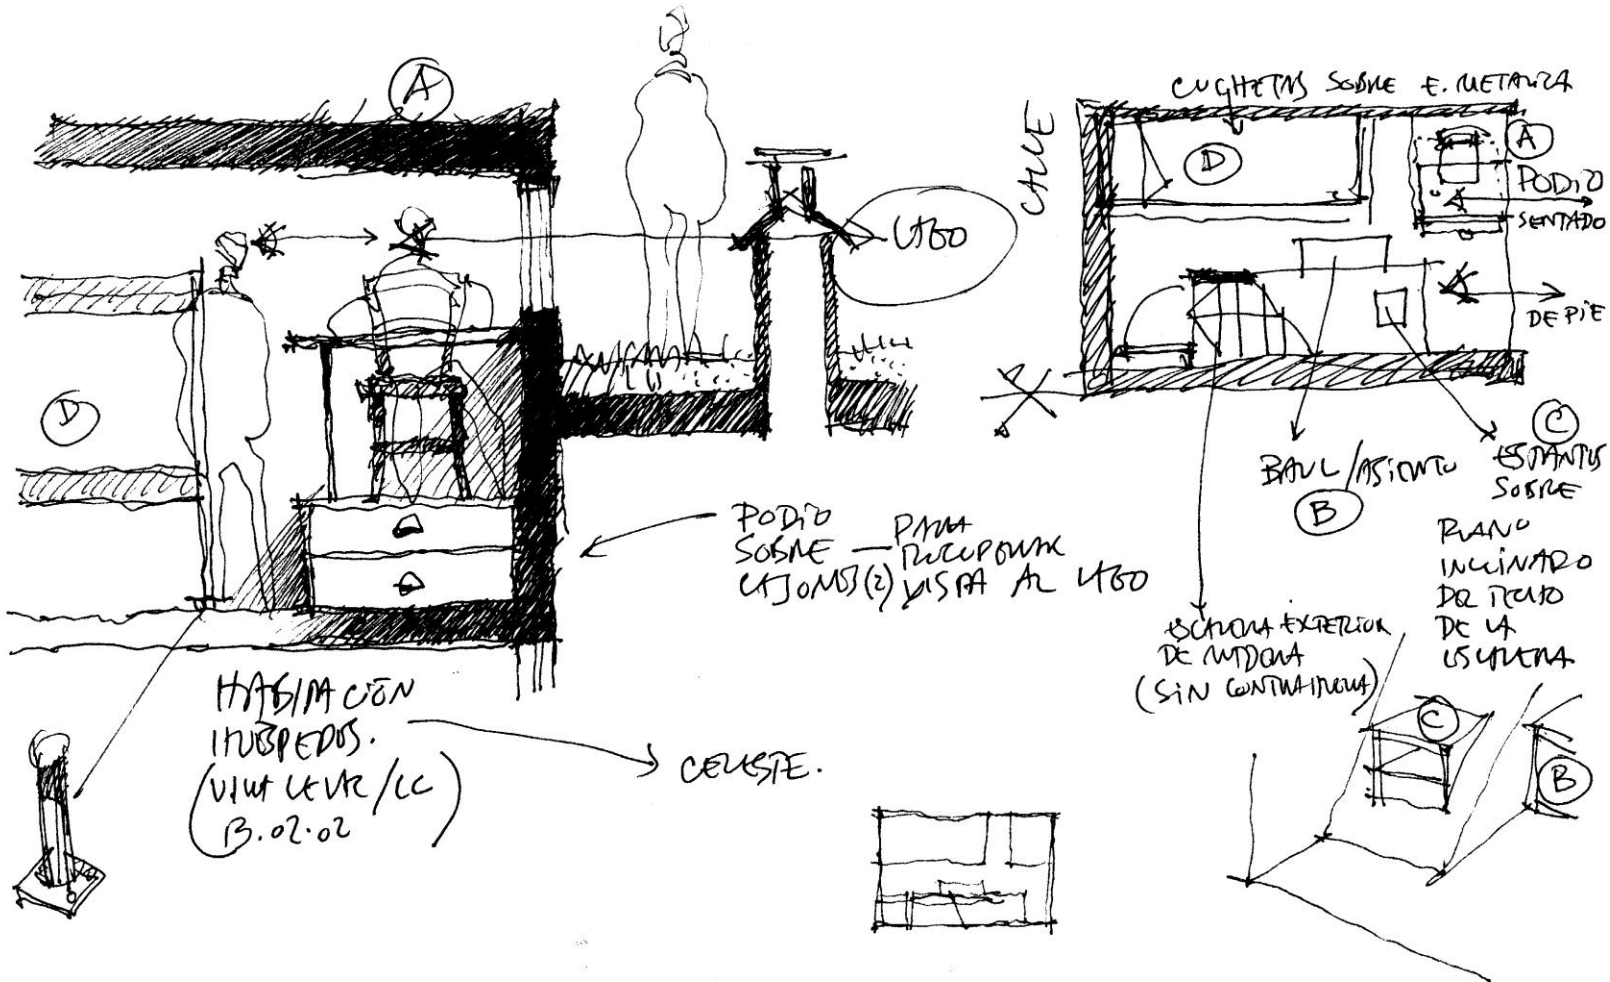 A
LAGO
D
PODIO
SOBRE — PARA
CAJONES (2) RECUPERAR
VISTA AL LAGO
HABITACIÓN
HUÉSPEDES.
(VILLA LE LAC / LC
13.02.02)
CELESTE.
CALLE
CUCHETAS SOBRE E. METALICA
D
A
PODIO
SENTADO
DE PIE
BAUL/ASIENTO
B
C
ESTANTES
SOBRE
PLANO
INCLINADO
DEL TECHO
DE LA
ESCALERA
ESCALERA EXTERIOR
DE MADERA
(SIN CONTRAHUELLA)
C
B